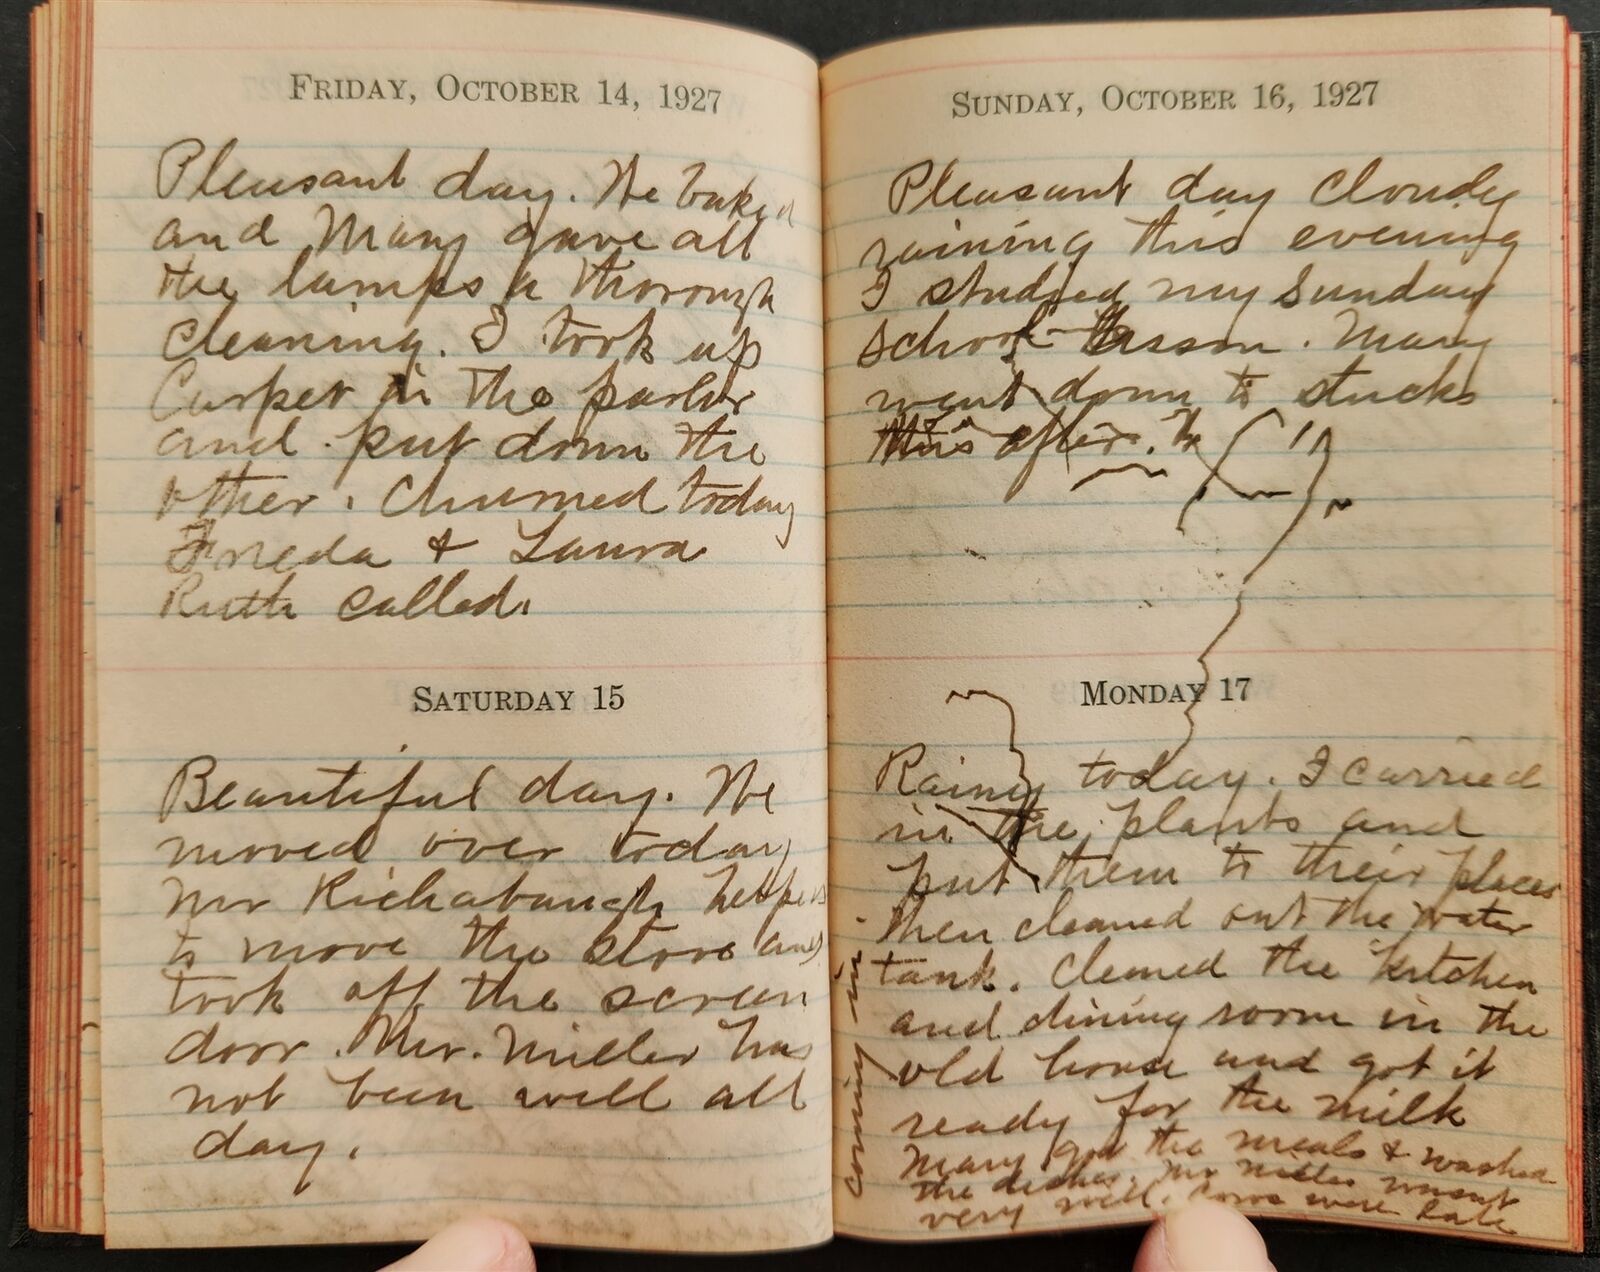 FRIDAY, OCTOBER 14, 1927
Pleasant day. We baked
and Mary gave all
the lamps a thorough
cleaning. I took up
Carpet in the parlor
and put down the
other. Churned today
Freda & Laura
Ruth called.
SATURDAY 15
Beautiful day. We
moved over today
Mr Richabaugh helped
to move the stove and
took off the screen
door. Mr. Miller has
not been well all
day.
SUNDAY, OCTOBER 16, 1927
Pleasant day cloudy
raining this evening
I studied my Sunday
school lesson. Mary
went down to stucks
this after.
MONDAY 17
Rainy today. I carried
in the plants and
put them to their places
then cleaned out the water
tank. Cleaned the kitchen
and dining room in the
old house and got it
ready for the milk
Mary got the meals & washed
the dishes. Mr Miller wasnt
very well. Cows were late
coming in.